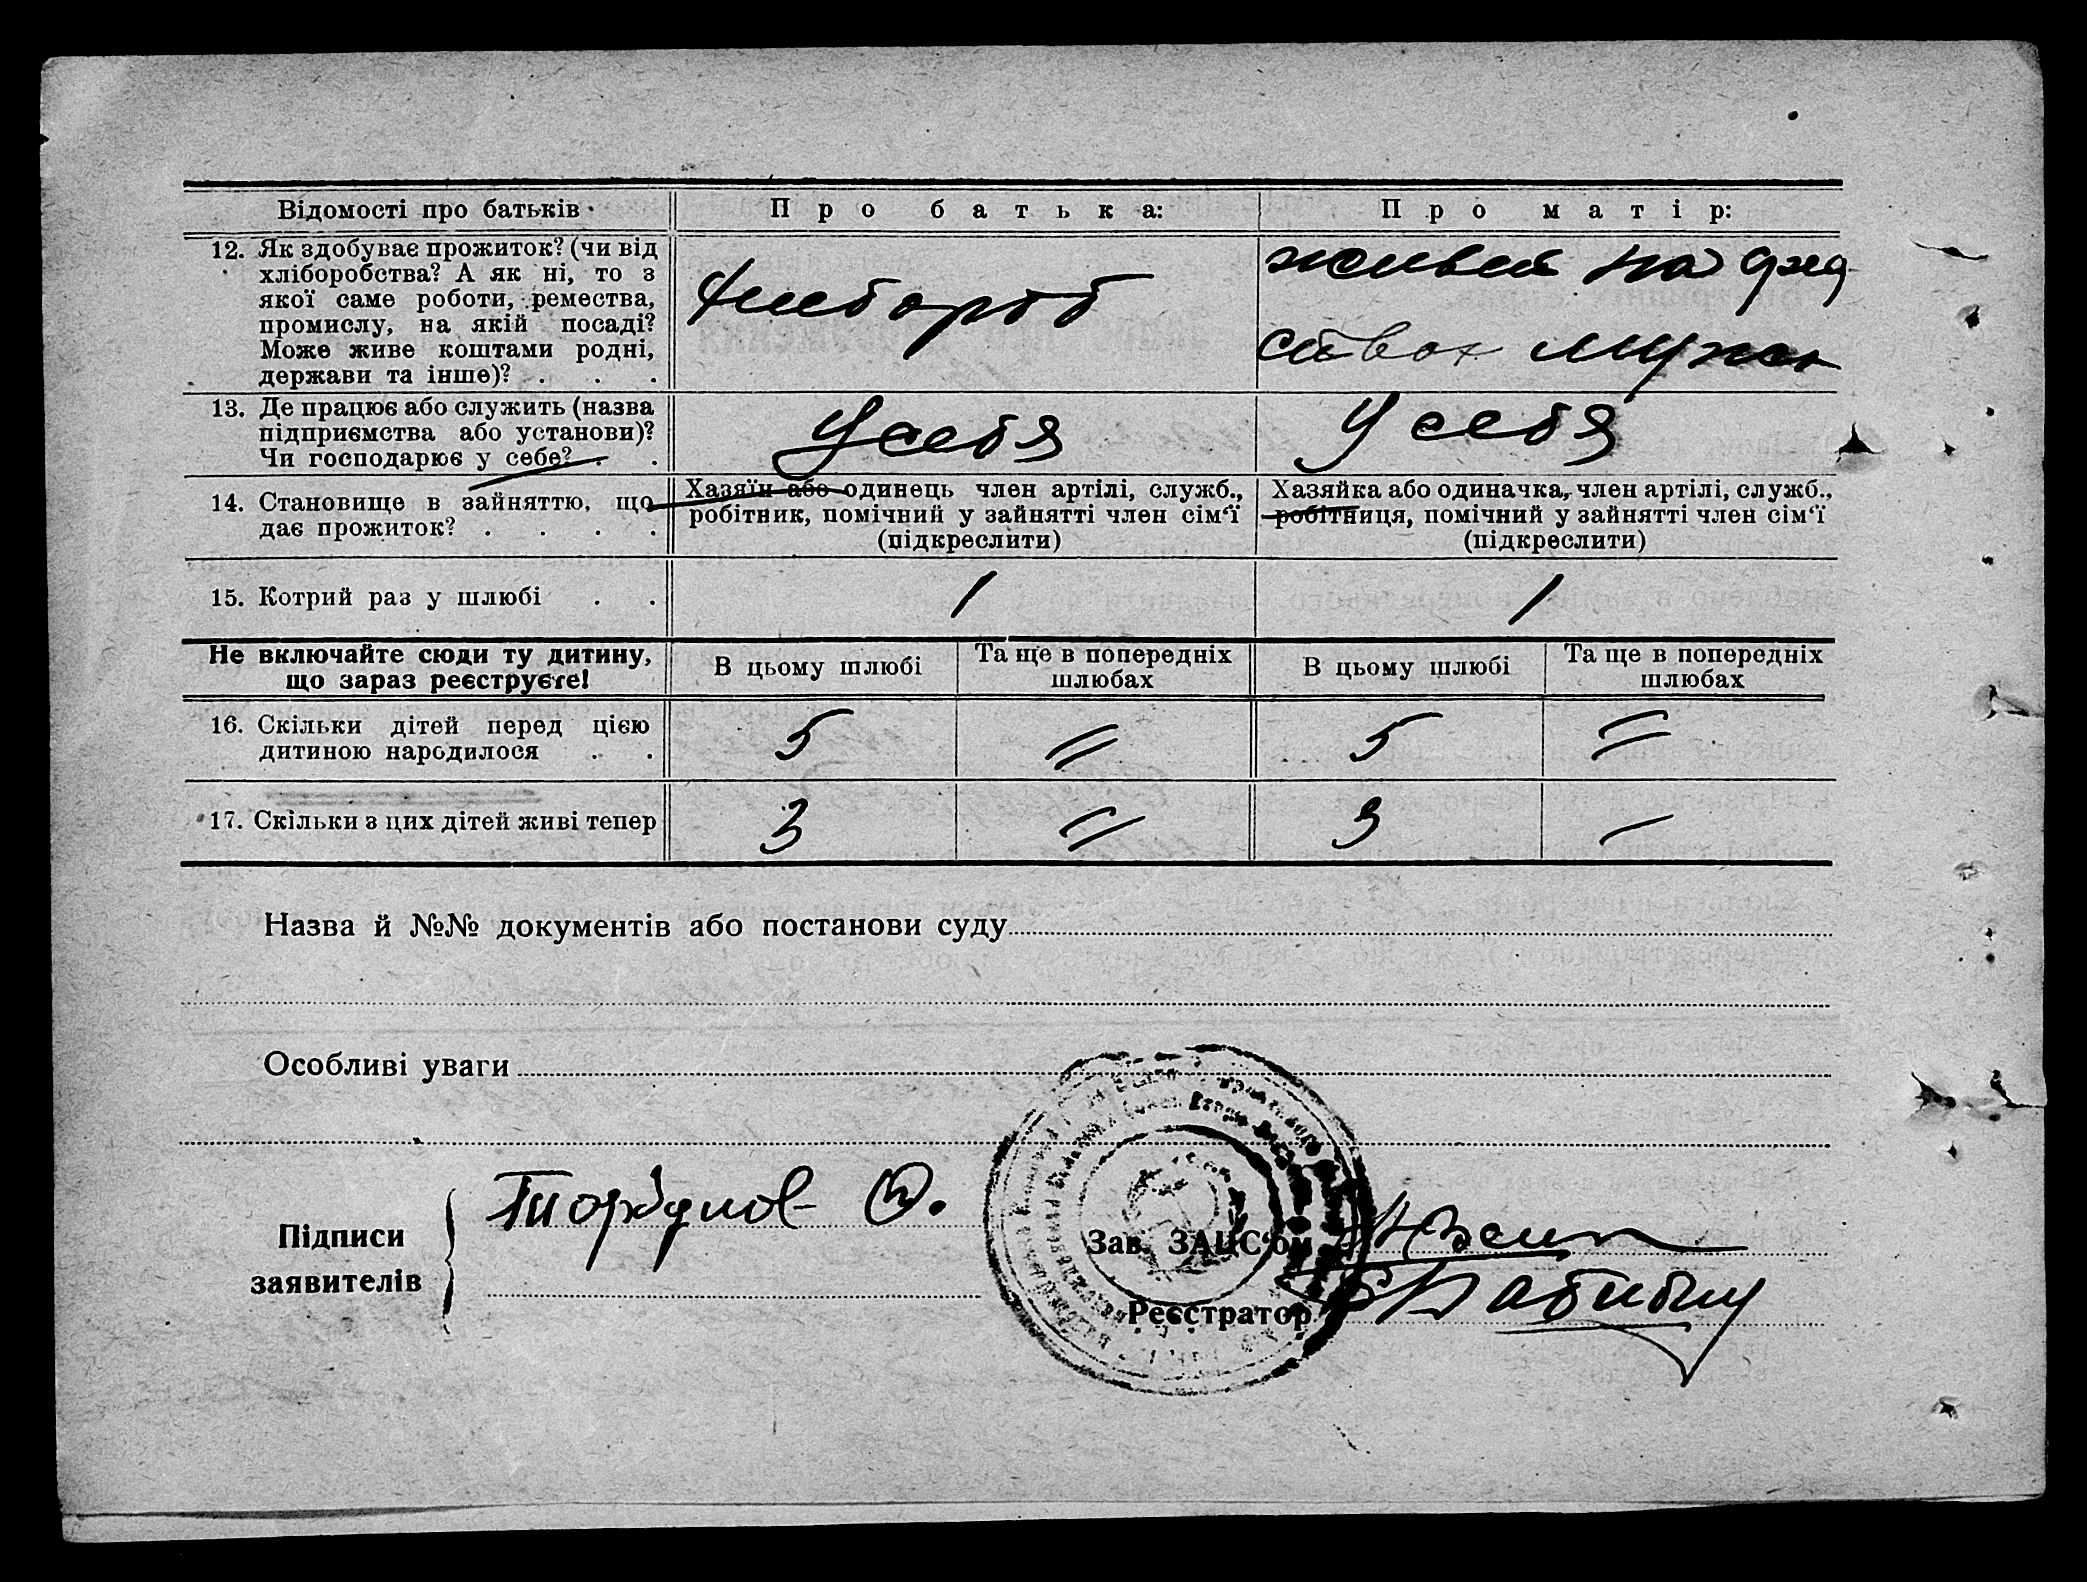 Відомості про батьків
Про батька:
Про матір:
12. Як здобуває прожиток? (чи від
хліборобства? А як ні, то з
якої саме роботи, ремества,
промислу, на якій посаді?
Може живе коштами родні,
держави та інше)? . . .
Хлебороб
живет на сред
ствах мужа
13. Де працює або служить (назва
підприємства або установи)?
Чи господарює у себе? . .
У себя
У себя
14. Становище в зайняттю, що
дає прожиток? . . . .
Хазяїн або одинець член артілі, служб.,
робітник, помічний у зайнятті член сім‘ї
(підкреслити)
Хазяйка або одиначка, член артілі, служб.,
робітниця, помічний у зайнятті член сім‘ї
(підкреслити)
15. Котрий раз у шлюбі . .
1
1
Не включайте сюди ту дитину,
що зараз реєструєте!
В цьому шлюбі
Та ще в попередніх
шлюбах
В цьому шлюбі
Та ще в попередніх
шлюбах
16. Скільки дітей перед цією
дитиною народилося . .
5
=
5
=
17. Скільки з цих дітей живі тепер
3
=
3
–
Назва й №№ документів або постанови суду
Особливі уваги
Підписи
заявителів
Зав. ЗАЦС‘ом
Реєстратор